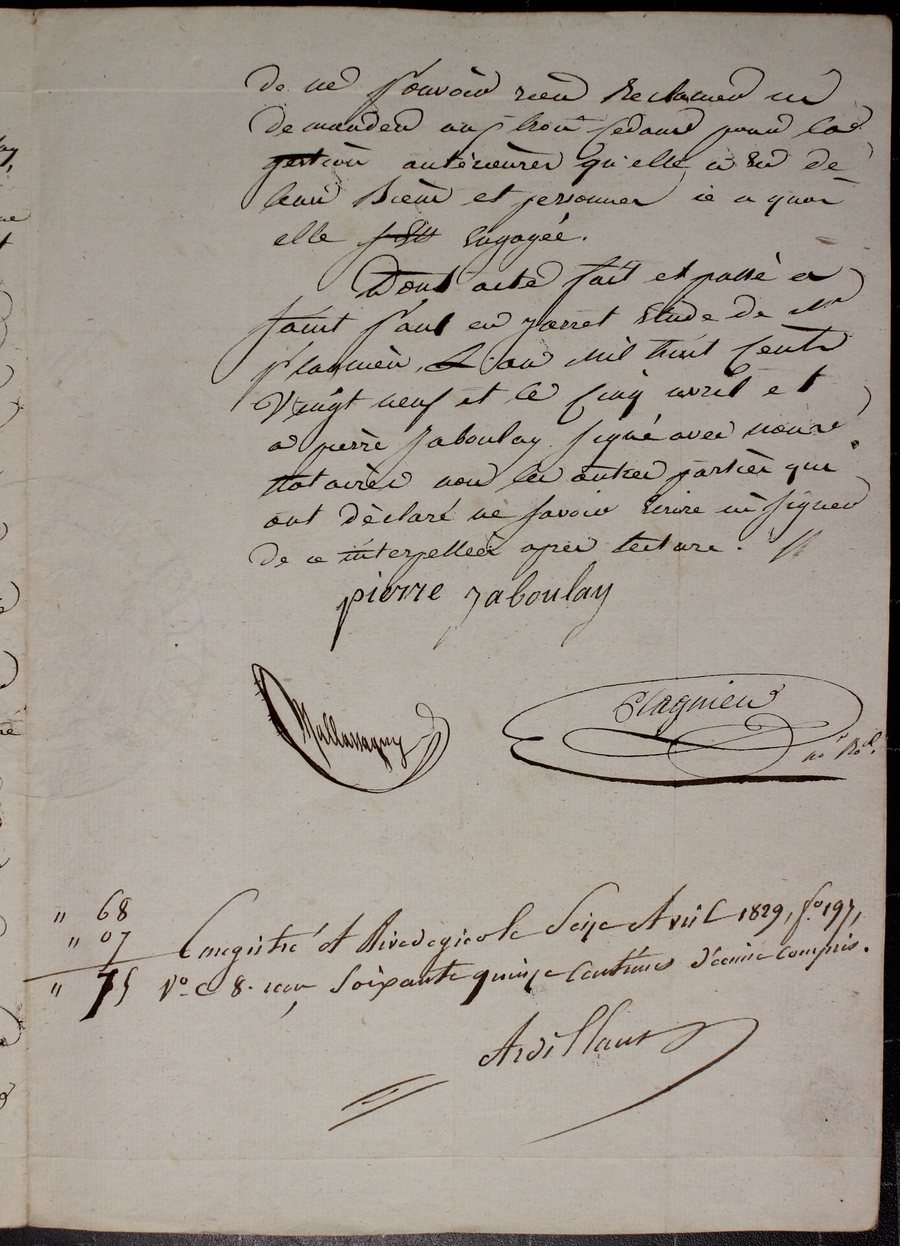 de ne pouvoir rien Reclamer ni
demander aux pour la
gestion antérieure qu'elle a Eu de
leur Biens et personnes ce a quoi
elle s'est Engagée.
Dont acte fait et passé a
saint Paul en Jarret Etude de Me
plagnieu, L'an mil huit Cents
Vingt neuf et le Cinq avril et
a pierre Jaboulay signé avec nous
Notaires non les autres parties qui
ont déclaré ne savoir Ecrire ni signer
de ce interpellées après lecture.
pierre Jaboulay
Mallassagny
Plagnieu
no.re R.al
" 68
" 07
" 75
Enregistré A Rivedegier le Seize Avril 1829, f.o 197,
V.o C. 8. recu Soixante quinze Centimes décime compris.
Ardillaux